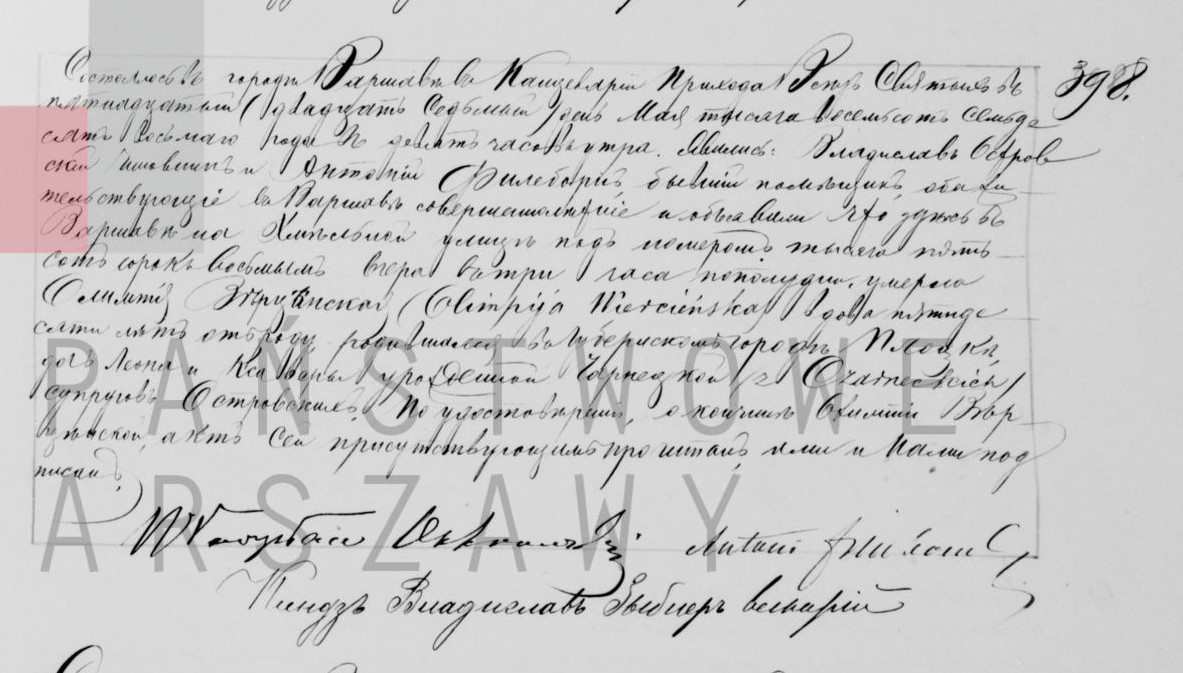 398.
Состоялось въ городѣ Варшавѣ въ Канцеляріи Прихода Всѣхъ Святыхъ въ
пятнадцатый (двадцать седьмый) день Мая тысяча восемьсотъ семьде
сятъ восьмаго года въ девять часовъ утра. Явились: Владиславъ Остров
скій чиновникъ и Антоній бывшій помѣщикъ, оба жи
тельствующіе въ Варшавѣ совершеннолѣтніе и объявили что здѣсь въ
Варшавѣ на Хмѣльной улицѣ подъ номеромъ тысяча пять
сотъ сорокъ восьмымъ вчера въ три часа пополудни, умерла
Олимпія Вѣрцинская (Olimpija Wiercieńska) вдова пятиде
сяти лѣтъ отъ роду, родившаяся въ Губернскомъ городѣ Плоцкѣ,
дочь Леона и урожденной Чарнецкой (z Czarneckich)
супруговъ Островскихъ. По удостовѣреніи о кончинѣ Олимпіи Вѣр
цинской, актъ сей присутствующимъ прочитанъ, ими и Нами под
писанъ.
Antoni
Ксендзъ Владиславъ викарій
PAŃSTWOWE
ARSZAWY